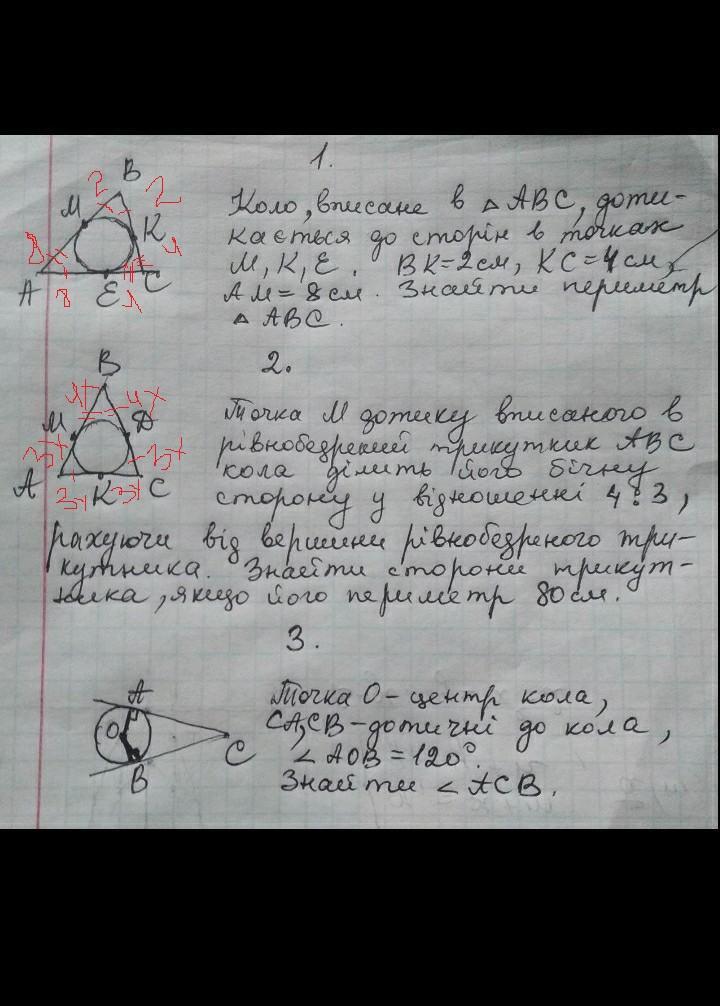 1.
B
2 2
M
K
8 4
A 8 E 4 C
Коло, вписане в △ ABC, доти-
кається до сторін в точках
M, K, E. BK=2см, KC=4см,
AM=8см. Знайти периметр
△ ABC.
2.
B
4x 4x
M Д
3x 3x
A 3x K 3x C
Точка M дотику вписаного в
рівнобедрений трикутник ABC
кола ділить його бічну
сторону у відношенні 4:3,
рахуючи від вершини рівнобедреного три-
кутника. Знайти сторони трикут-
ника, якщо його периметр 80см.
3.
A
O
C
B
Точка O - центр кола,
CA, CB - дотичні до кола,
∠AOB = 120°.
Знайти ∠ACB.